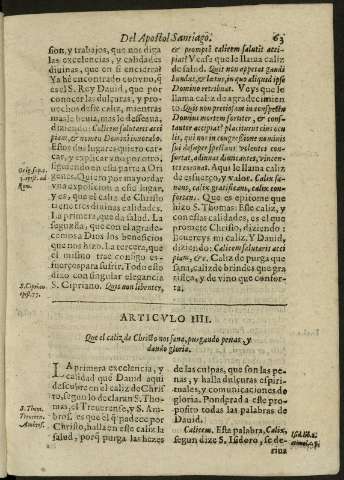 Del Apostol Santiago. 63
sion, y trabajos, que nos diga
las excelencias, y calidades
divinas, que en si encierra?
Ya he encontrado conviño, q̃
es el S. Rey David, que por
conocer las dulçuras, y pro-
vechos deste caliz, mientras
mas le bevia, mas le desseava,
diziendo: Calicem salutaris acci
piam, & nomen Domini invocabo.
Estos dos lugares quiero car-
ear, y explicar uno por otro,
siguiendo en esta parte a Ori
genes. Quiero por mayor da
una exposicion a esse lugar,
y es, que el caliz de Christo
tiene tres divinas calidades.
La primera, que da salud. La
segunda, que con el agrade-
cemos a Dios los beneficios
que nos hizo. La tercera, que
el mismo trae consigo es-
fuerço para sufrir. Todo esto
dixo con singular elegancia
S. Cipriano. Quis non libenter,
Orig. sup.
Rom.
S. Ciprian.
epist. 77.
& prompte calicem salutis acci
piat? Ves a que le llama caliz
de salud. Quis non appetat gaudi
bundus, & lætus, in quo aliquid ipse
Domino retribuat. Veys que le
llama caliz de agradecimien
to. Quis non pretiosam in conspectu
Domini mortem fortiter, & cons-
tanter accipiat? placiturus ejus ocu
lis, qui nos in congressione nominis
sui desuper spectans volentes con-
fortat, adiuvat dimicantes, vincen-
tes coronat. Aqui le llama caliz
de esfuerço, y valor. Calix sa-
nans, calix gratificans, calix con-
fortans. Que es epitome que
hizo S. Thomas: Este caliz, y
con essas calidades, es el que
promete Christo, diziendo:
Bevereys mi caliz. Y David,
diziendo: Calicem salutaris acci
piam, &c. Caliz de purga que
sana, caliz de brindes que gra
tifica, y de vino que confor-
ta.
ARTICVLO IIII.
Que el caliz de Christo nos sana, purgando penas, y
dando gloria.
LA primera excelencia, y
calidad que David aqui
descubre en el caliz de Chris
to, segun lo declaran S. Tho-
mas, el Treverense, y S. Am-
bros. es que el q̃ padece por
Christo, halla en este caliz la
salud, porq̃ purga las hezes
S. Thom.
Treverens.
Ambros.
de las culpas, que son las pe-
nas, y halla dulçuras espiri-
tuales, y comunicaciones de
gloria. Ponderad a este pro-
posito todas las palabras de
David.
Calicem. Esta palabra, Calix,
segun dize S. Isidoro, se de-
riva
Isid. lib. 2.